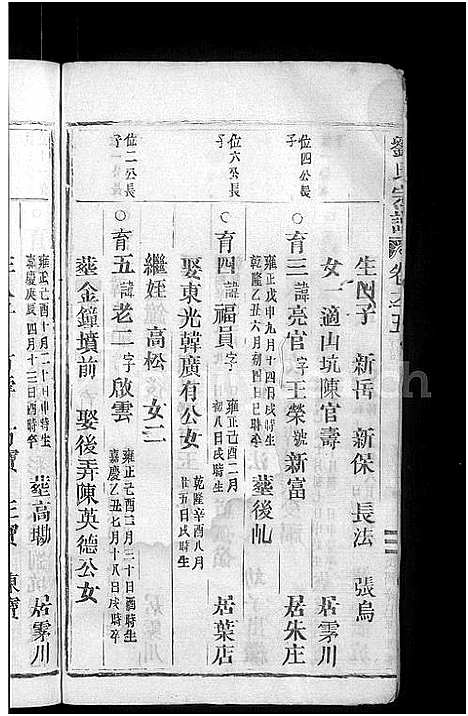 劉氏宗譜 卷之五
生四子 新岳 新保 長法 張烏
女一適山坑陳官壽 居雾川
位四公長子
○育三 諱亮官 字王榮 號新富 居朱庄
雍正戊申九月十四日戌時生
乾隆乙丑六月初四日巳時卒
葬後乢
位六公長子
○育四 諱福員 字 雍正己酉二月初八日戌時生 居葉店
娶東光韓廣有公女 乾隆辛酉八月廿五日戌時生
繼姪高松 女二
位二公長子
○育五 諱老二 字啟雲
雍正己酉二月三十日酉時生
嘉慶乙丑七月十八日戌時卒
葬金鐘墳前 娶後弄陳英德公女
雍正己酉十月二十日申時生
嘉慶庚辰四月十二日酉時卒
葬高塴 居雾川